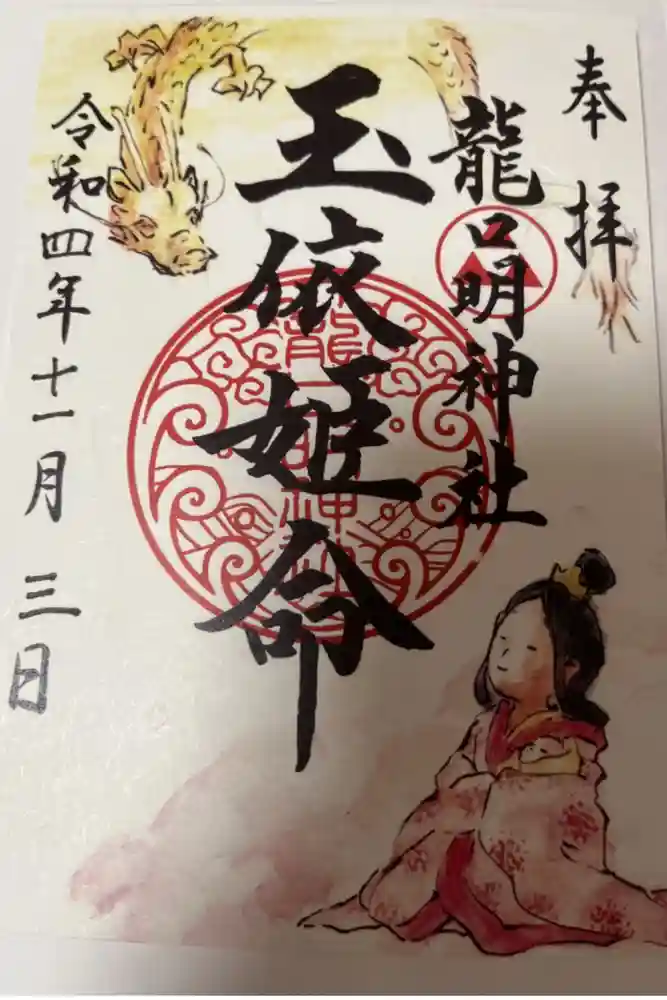 奉拝
龍口明神社
玉依姫命
令和四年十一月三日
龍口明神社